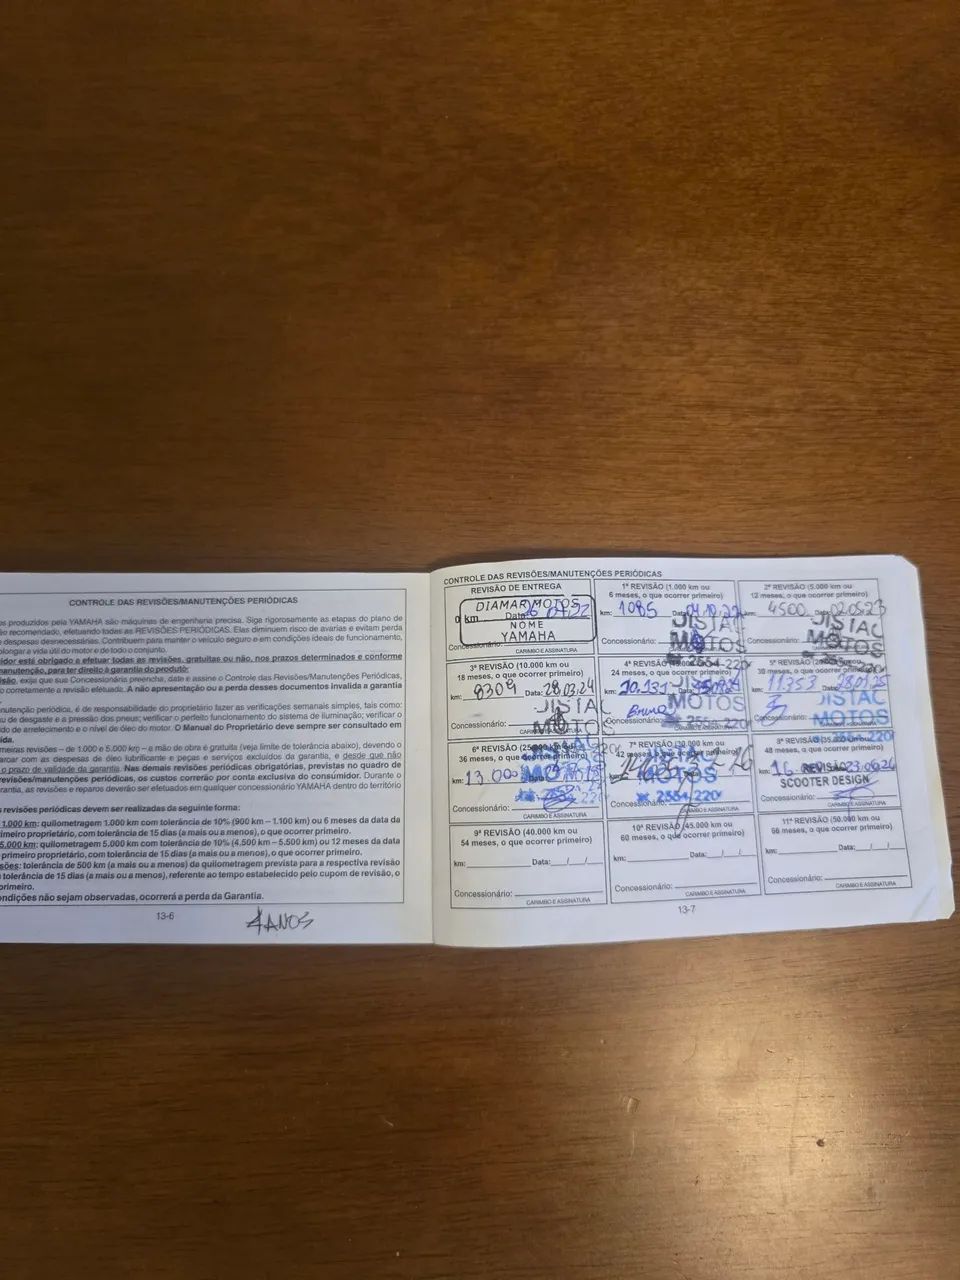 CONTROLE DAS REVISÕES/MANUTENÇÕES PERIÓDICAS
os produzidos pela YAMAHA são máquinas de engenharia precisa. Siga rigorosamente as etapas do plano de
ão recomendado, efetuando todas as REVISÕES PERIÓDICAS. Elas diminuem risco de avarias e evitam perda
e despesas desnecessárias. Contribuem para manter o veículo seguro e em condições ideais de funcionamento,
olongar a vida útil do motor e de todo o conjunto.
idor está obrigado a efetuar todas as revisões, gratuitas ou não, nos prazos determinados e conforme
manutenção, para ter direito à garantia do produto:
isão, exija que sua Concessionária preencha, date e assine o Controle das Revisões/Manutenções Periódicas,
o corretamente a revisão efetuada. A não apresentação ou a perda desses documentos invalida a garantia
nutenção periódica, é de responsabilidade do proprietário fazer as verificações semanais simples, tais como:
u de desgaste e a pressão dos pneus; verificar o perfeito funcionamento do sistema de iluminação; verificar o
ido de arrefecimento e o nível de óleo do motor. O Manual do Proprietário deve sempre ser consultado em
ida.
meiras revisões – de 1.000 e 5.000 km – a mão de obra é gratuita (veja limite de tolerância abaixo), devendo o
arcar com as despesas de óleo lubrificante e peças e serviços excluídos da garantia, e desde que não
o prazo de validade da garantia. Nas demais revisões periódicas obrigatórias, previstas no quadro de
revisões/manutenções periódicas, os custos correrão por conta exclusiva do consumidor. Durante o
rantia, as revisões e reparos deverão ser efetuados em qualquer concessionário YAMAHA dentro do território
s revisões periódicas deverão ser realizadas da seguinte forma:
1.000 km: quilometragem 1.000 km com tolerância de 10% (900 km – 1.100 km) ou 6 meses da data da
imeiro proprietário, com tolerância de 15 dias (a mais ou a menos), o que ocorrer primeiro.
5.000 km: quilometragem 5.000 km com tolerância de 10% (4.500 km – 5.500 km) ou 12 meses da data
o primeiro proprietário, com tolerância de 15 dias (a mais ou a menos), o que ocorrer primeiro.
sões: tolerância de 500 km (a mais ou a menos) da quilometragem prevista para a respectiva revisão
tolerância de 15 dias (a mais ou a menos), referente ao tempo estabelecido pelo cupom de revisão, o
primeiro.
ondições não sejam observadas, ocorrerá a perda da Garantia.
13-6
4 ANOS
CONTROLE DAS REVISÕES/MANUTENÇÕES PERIÓDICAS
REVISÃO DE ENTREGA
DIAMAR MOTOS
0 km Data
NOME
YAMAHA
Concessionário:
CARIMBO E ASSINATURA
1ª REVISÃO (1.000 km ou
6 meses, o que ocorrer primeiro)
km: 1085 Data: 04.10.22
JISTAC
MOTOS
Concessionário:
2554-220
CARIMBO E ASSINATURA
2ª REVISÃO (5.000 km ou
12 meses, o que ocorrer primeiro)
km: 4500 Data: 02.05.23
JISTAC
MOTOS
Concessionário:
CARIMBO E ASSINATURA
3ª REVISÃO (10.000 km ou
18 meses, o que ocorrer primeiro)
km: 8309 Data: 28.03.24
JISTAC
MOTOS
Concessionário:
4ª REVISÃO
24 meses, o que ocorrer primeiro)
km: 10.131 Data:
Bruno
MOTOS
Concessionário:
2554-220
CARIMBO E ASSINATURA
5ª REVISÃO
30 meses, o que ocorrer primeiro)
km: 11353 Data: 28.01.25
JISTAC
MOTOS
Concessionário:
6ª REVISÃO
36 meses, o que ocorrer primeiro)
km: 13.000 Data
MOTOS
CARIMBO E ASSINATURA
7ª REVISÃO (30.000 km ou
42 meses, o que ocorrer primeiro)
MOTOS
2554-220
CARIMBO E ASSINATURA
8ª REVISÃO (35.000 km ou
48 meses, o que ocorrer primeiro)
km: 16. REVISÃO 23.06.26
SCOOTER DESIGN
CARIMBO E ASSINATURA
9ª REVISÃO (40.000 km ou
54 meses, o que ocorrer primeiro)
km: Data: / /
Concessionário:
CARIMBO E ASSINATURA
10ª REVISÃO (45.000 km ou
60 meses, o que ocorrer primeiro)
km: Data: / /
Concessionário:
CARIMBO E ASSINATURA
11ª REVISÃO (50.000 km ou
66 meses, o que ocorrer primeiro)
km: Data: / /
Concessionário:
CARIMBO E ASSINATURA
13-7